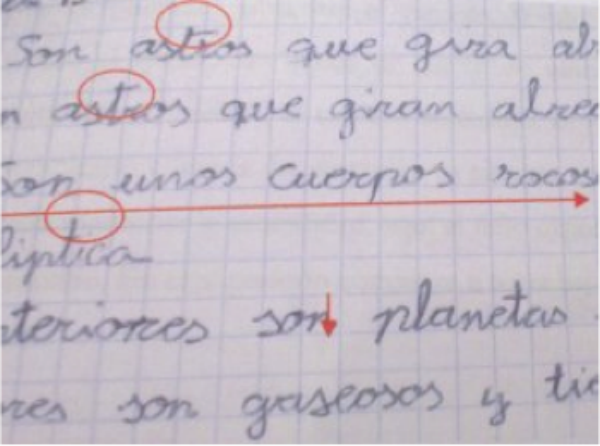 Son astros que gira al
n astros que giran alre
Son unos cuerpos rocos
líptica
teriores son planetas
res son gaseosos y tie